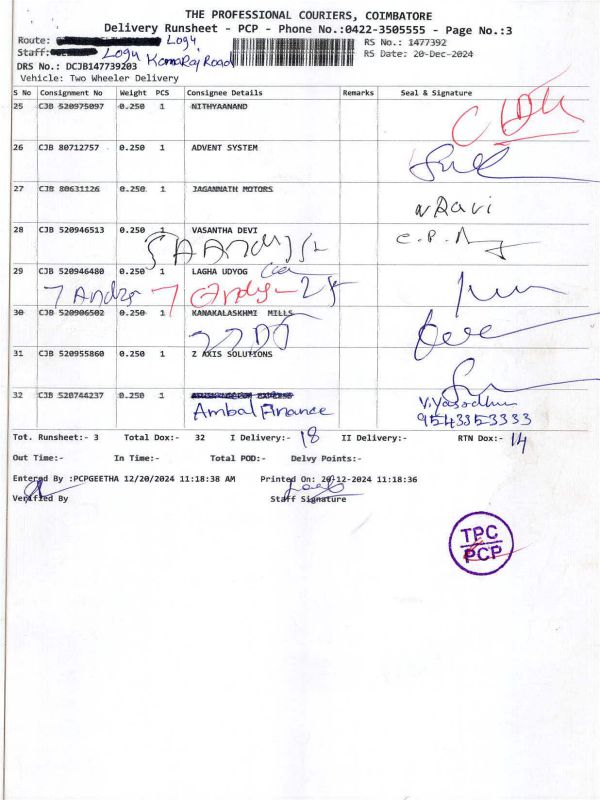 THE PROFESSIONAL COURIERS, COIMBATORE
Delivery Runsheet - PCP - Phone No.:0422-3505555 - Page No.:3
Route: Logu
RS No.: 1477392
Staff: Logu Kamaraj Road
RS Date: 20-Dec-2024
DRS No.: DCJB147739203
Vehicle: Two Wheeler Delivery
S No Consignment No Weight PCS Consignee Details Remarks Seal & Signature
25 CJB 520975097 0.250 1 NITHYAANAND
26 CJB 80712757 0.250 1 ADVENT SYSTEM
27 CJB 80631126 0.250 1 JAGANNATH MOTORS
28 CJB 520946513 0.250 1 VASANTHA DEVI
29 CJB 520946480 0.250 1 LAGHA UDYOG
30 CJB 520906502 0.250 1 KANAKALASKHMI MILLS
31 CJB 520955860 0.250 1 Z AXIS SOLUTIONS
32 CJB 520744237 0.250 1
Ambal Finance
9543353333
Tot. Runsheet:- 3 Total Dox:- 32 I Delivery:- 18 II Delivery:- RTN Dox:- 14
Out Time:- In Time:- Total POD:- Delvy Points:-
Entered By :PCPGEETHA 12/20/2024 11:18:38 AM Printed On: 20-12-2024 11:18:36
Verified By Staff Signature
TPC
PCP